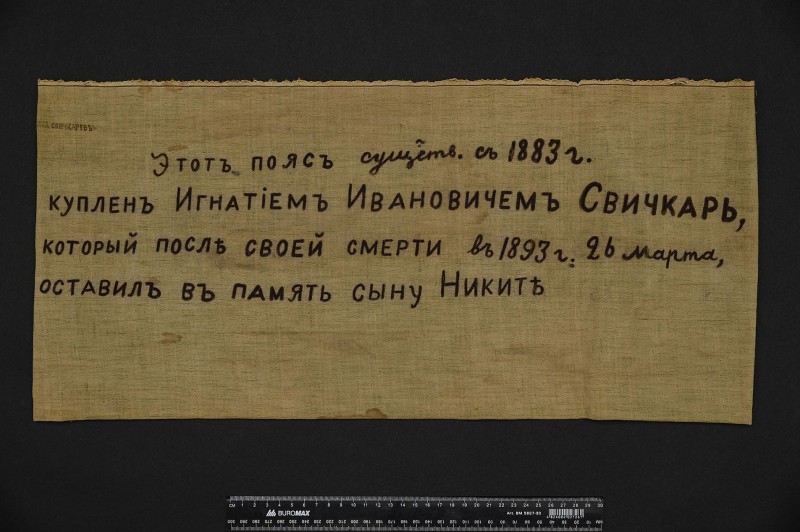 Этотъ поясъ существ. съ 1883 г.
купленъ Игнатіемъ Ивановичемъ Свичкарь,
который послѣ своей смерти въ 1893 г. 26 марта,
оставилъ въ память сыну Никитѣ
BUROMAX